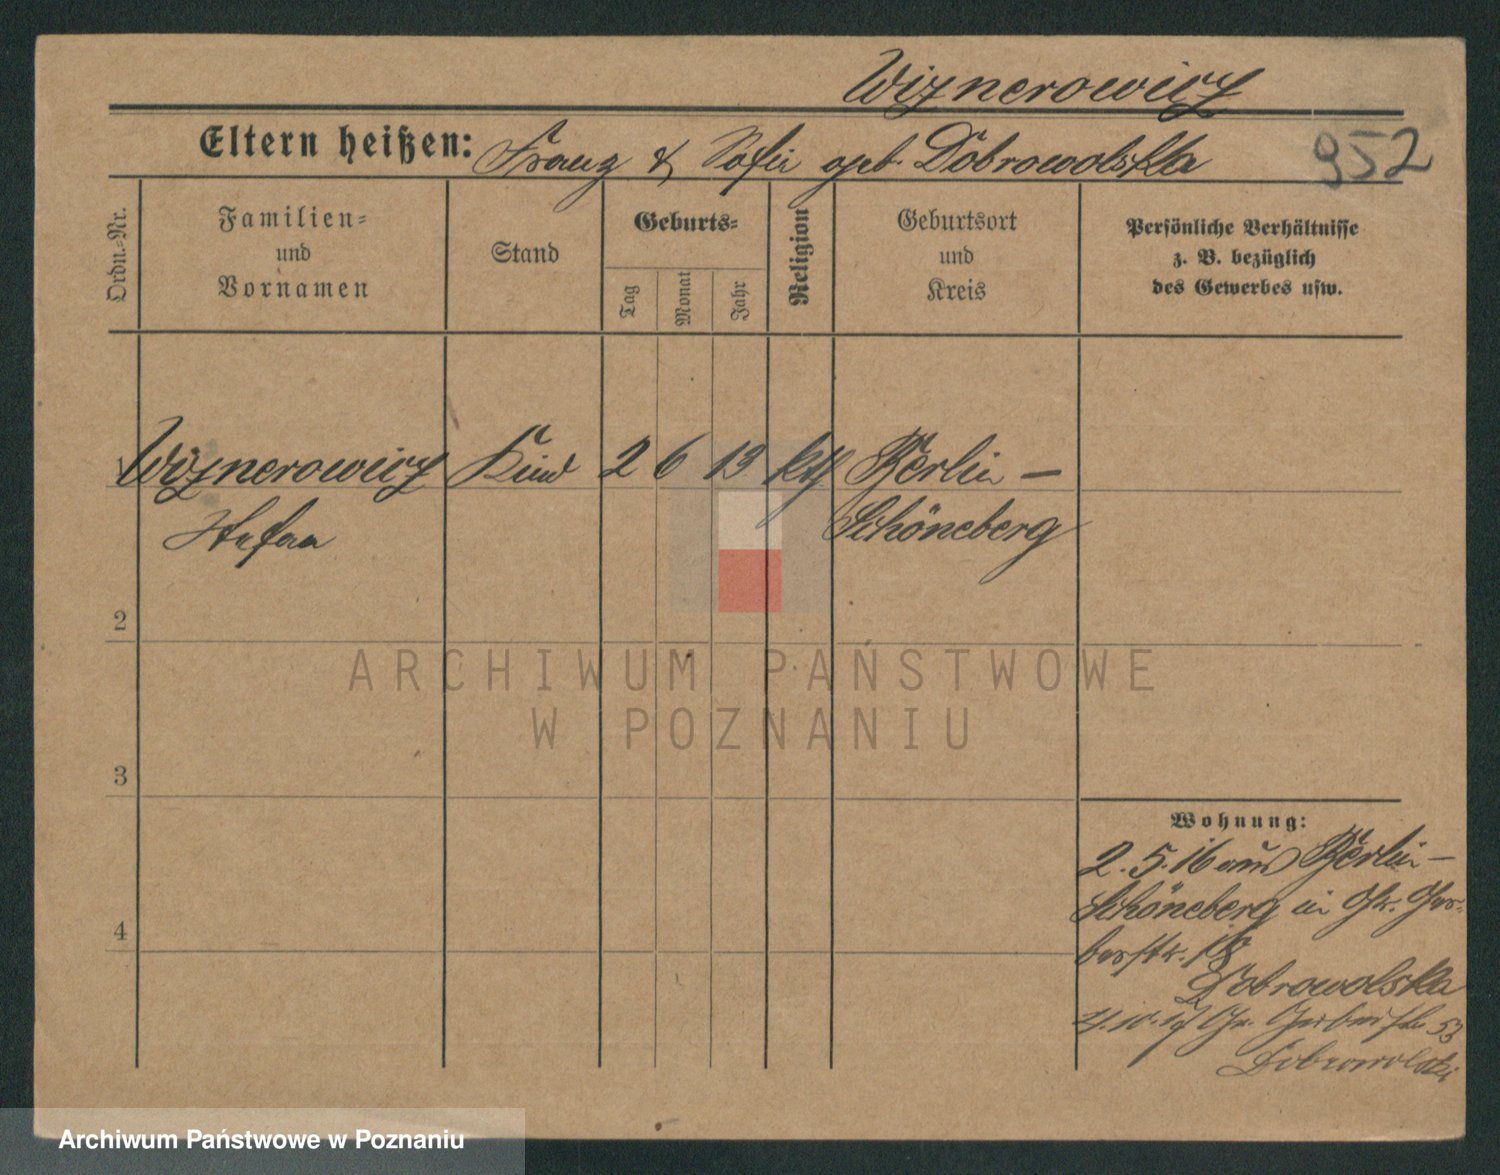 Wiznerowicz
Eltern heißen: Franz & Sofie geb. Dobrowolska
952
Ordn.-Nr.
Familien-
und
Vornamen
Stand
Geburts-
Tag
Monat
Jahr
Religion
Geburtsort
und
Kreis
Persönliche Verhältnisse
z. B. bezüglich
des Gewerbes usw.
Wiznerowicz Kind 2 6 13 kth Berlin –
Stefan Schöneberg
2
ARCHIWUM PAŃSTWOWE
W POZNANIU
3
Wohnung:
2. 5. 16 aus Berlin –
Schöneberg in Gr. Ger-
4
berstr. 18
Dobrowolska
Gr. Gerberstr. 53
Dobrowolski
Archiwum Państwowe w Poznaniu